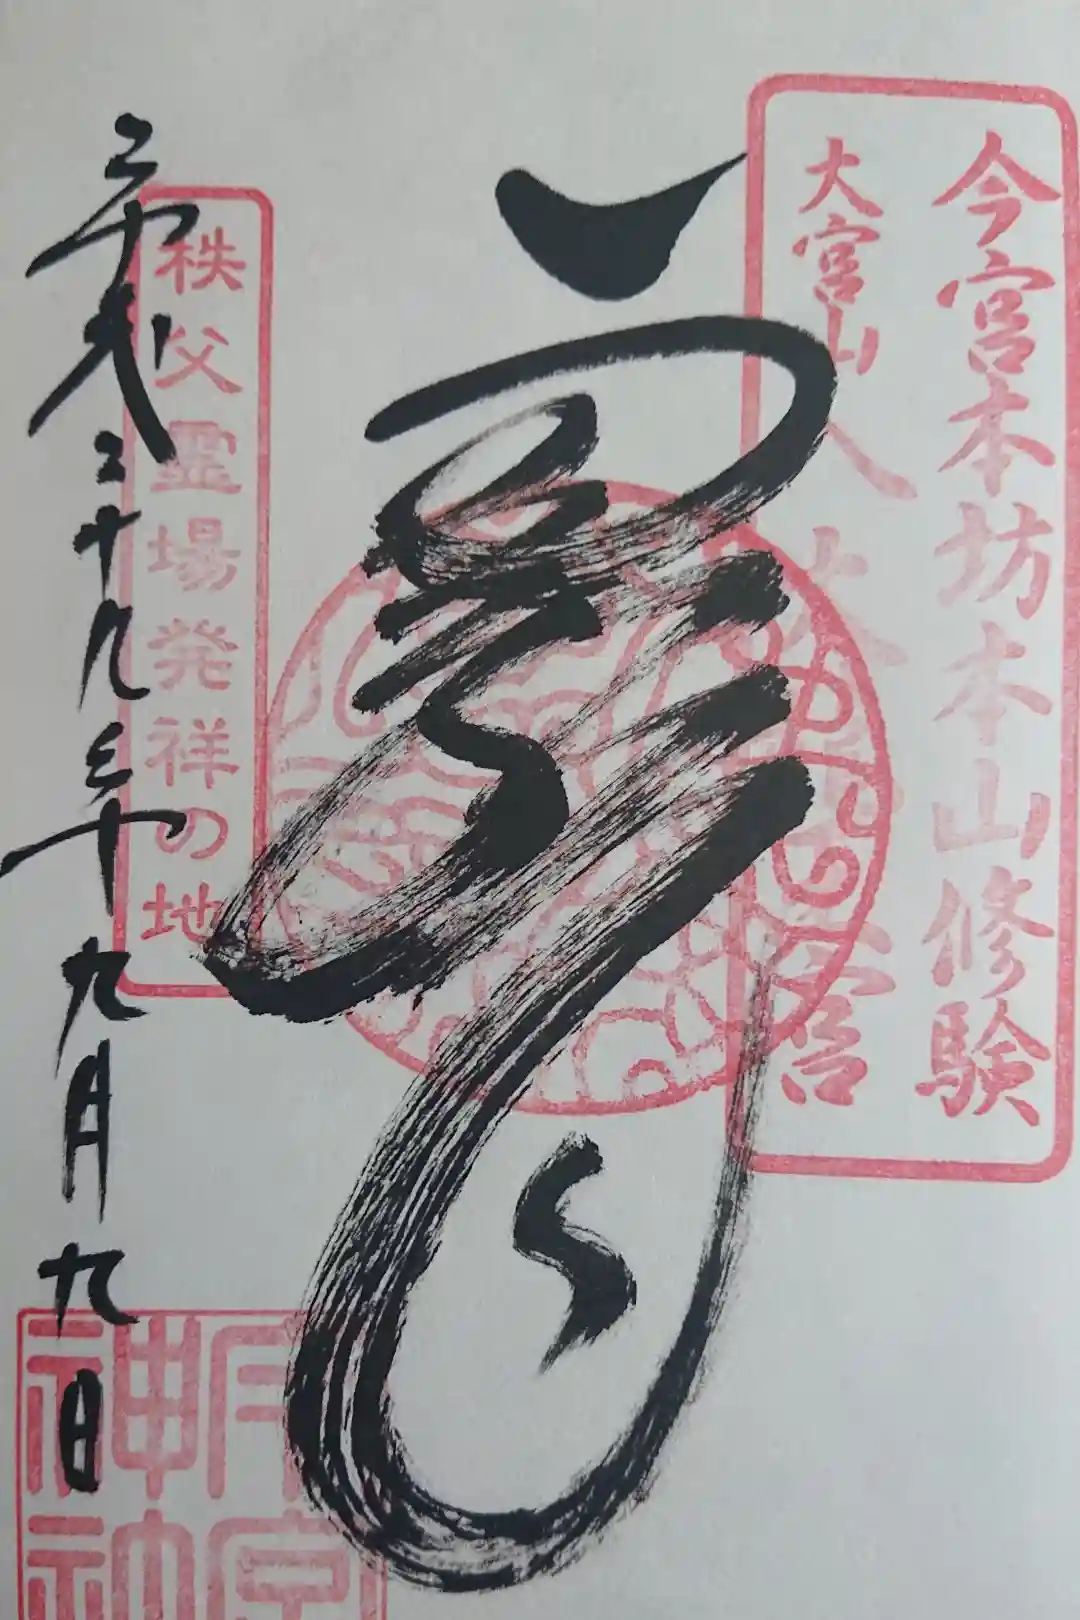 今宮本坊本山修験
大宮山八大龍王宮
龍
秩父霊場発祥の地
平成二十九年九月九日